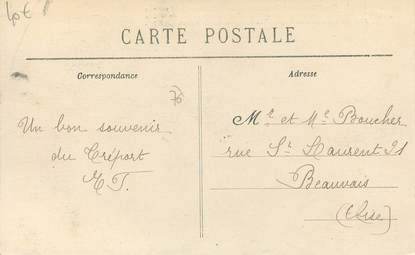 40€
CARTE POSTALE
Correspondance
Adresse
76
Un bon souvenir
du Tréport
Mr et Me Boucher
rue St Laurent 21
Beauvais
(Oise)